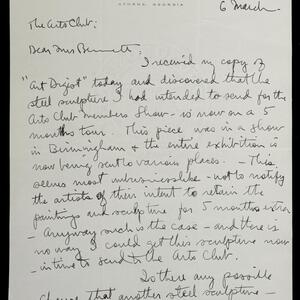 ATHENS, GEORGIA
6 March -
The Arts Club:
Dear Mrs Bennett;
I received my copy of
"Art Digest" today and discovered that the
steel sculpture I had intended to send for the
Arts Club members Show - is now on a 5
months tour. This piece was in a show
in Birmingham & the entire exhibition is
now being sent to various places. - This
seems most unbusinesslike - not to notify
the artists of their intent to retain the
paintings and sculpture for 5 months extra
- Anyway such is the case - and there is
no way I could get this sculpture now
- in time to send to the Arts Club.
Is there any possible
chance that another steel sculpture -